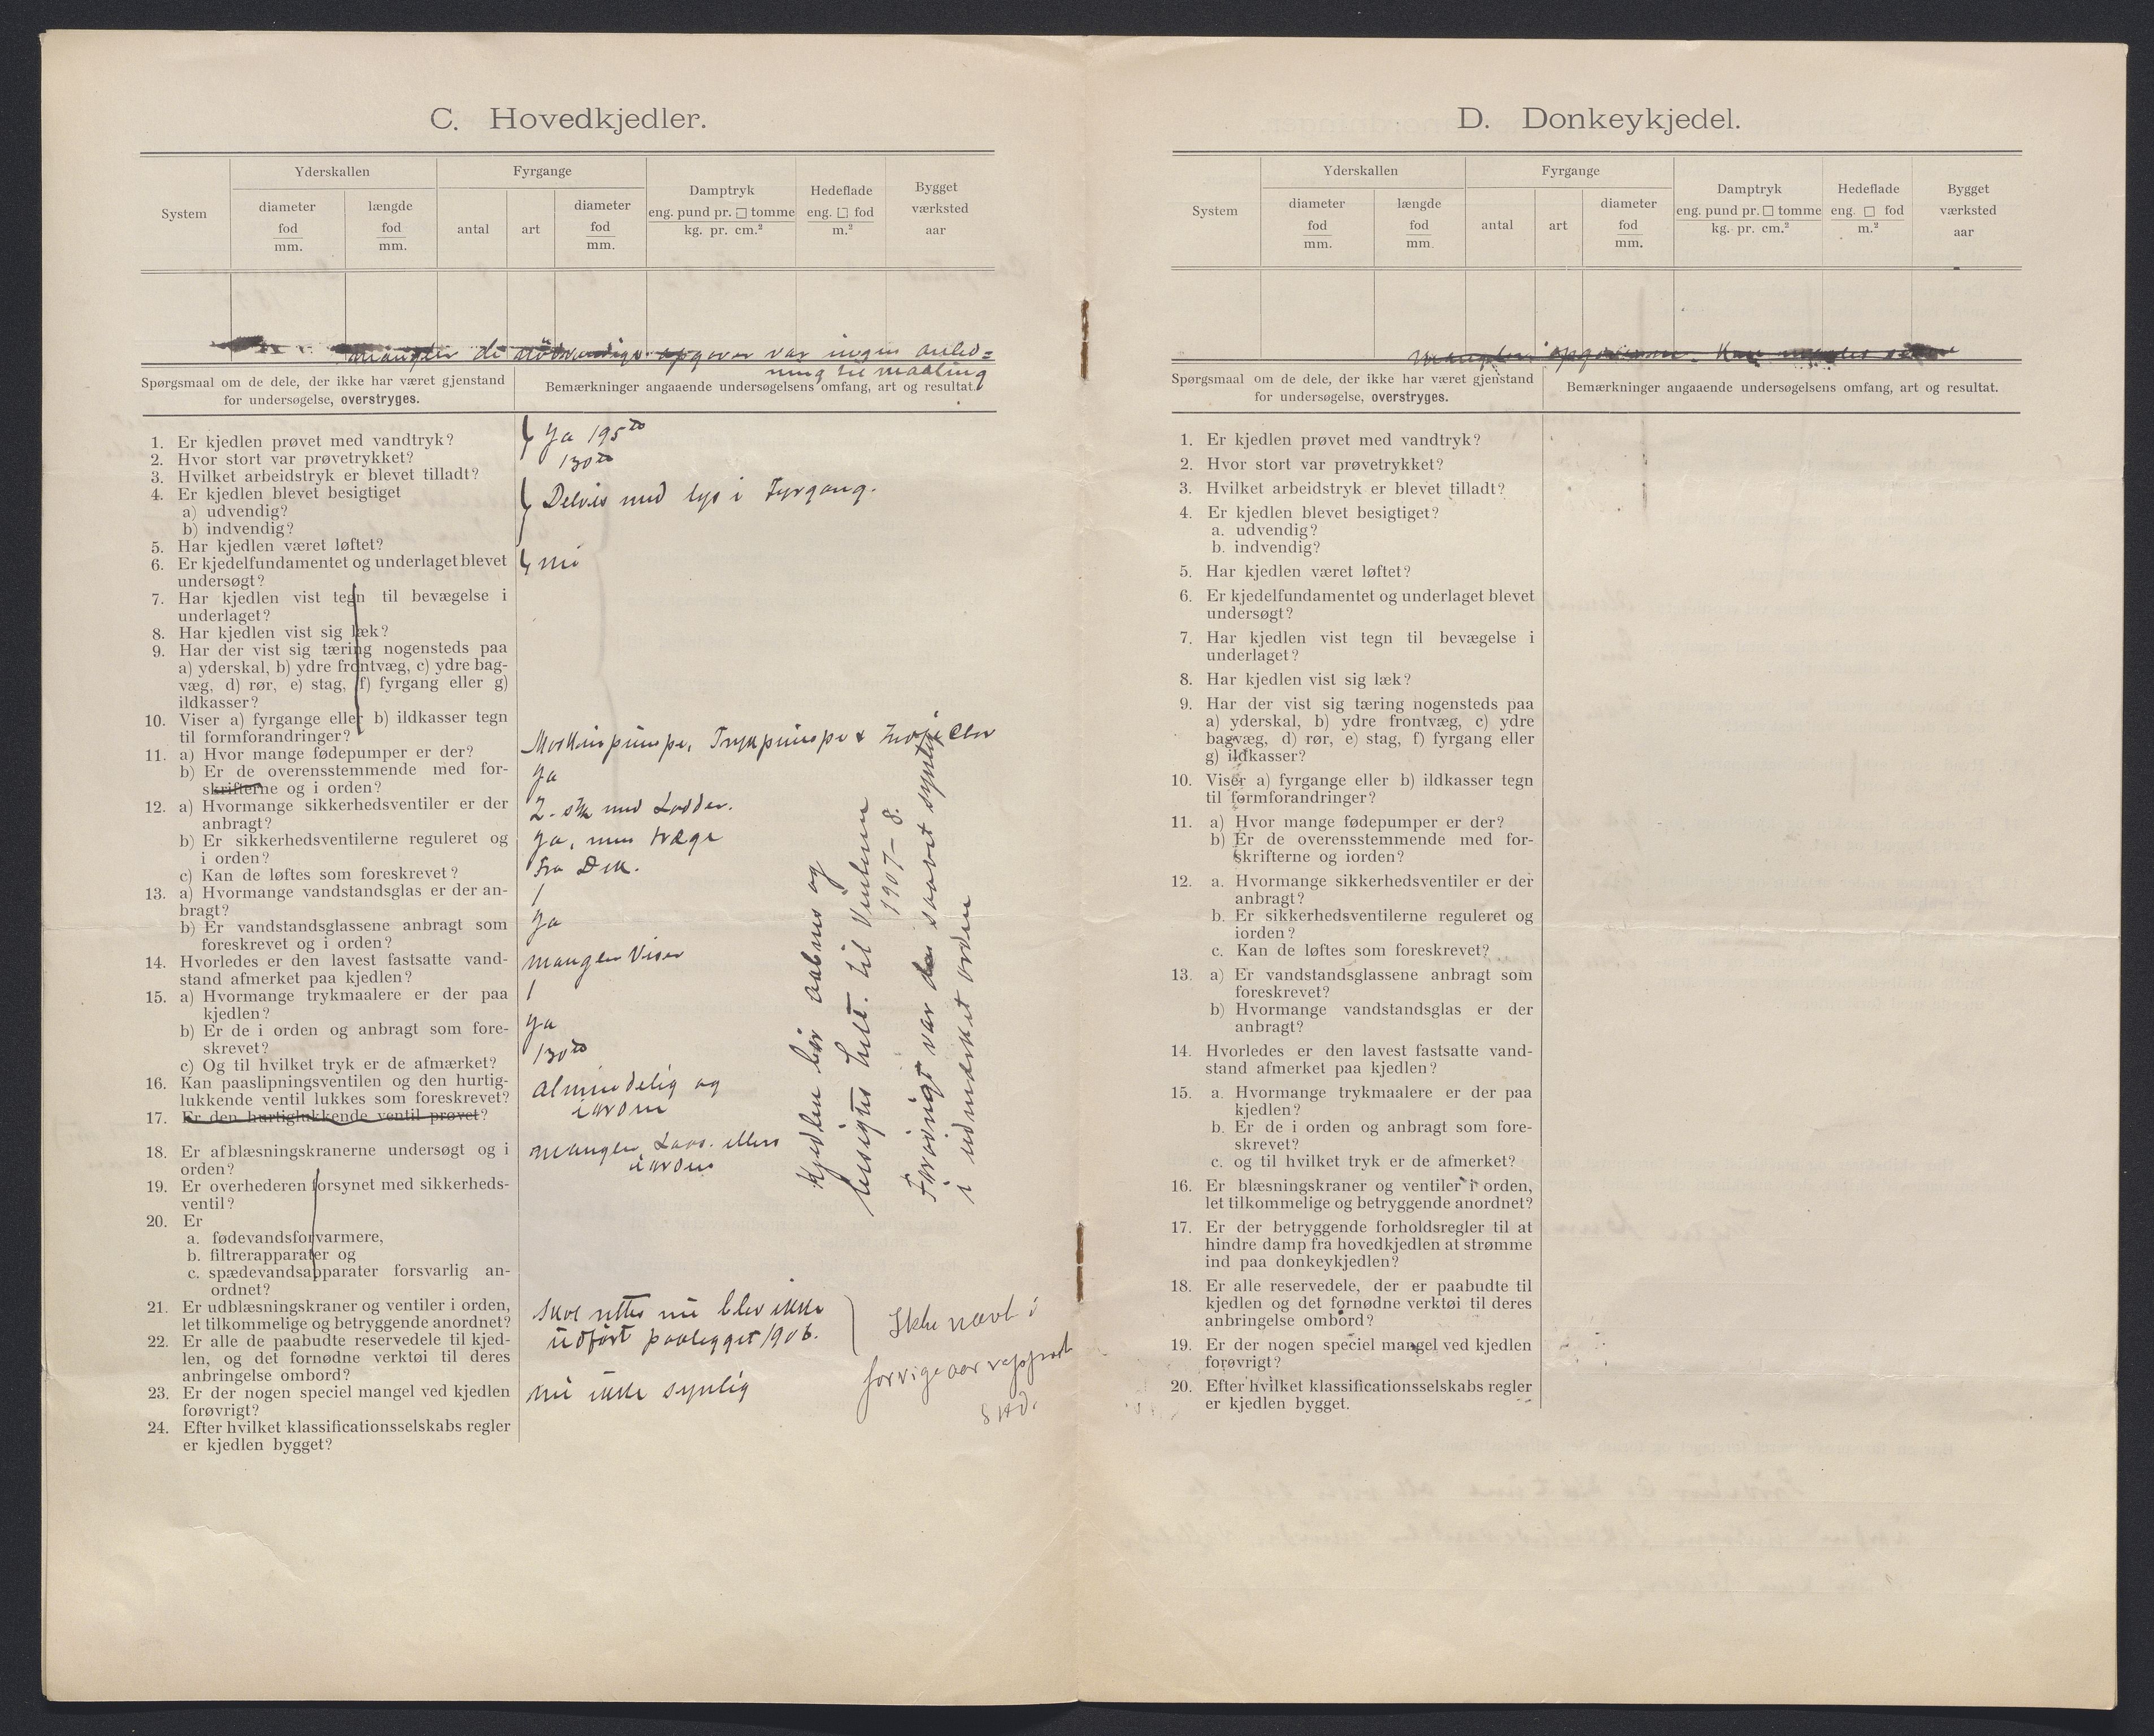 C. Hovedkjedler.
System
Yderskallen
diameter
fod
mm.
længde
fod
mm.
Fyrgange
antal
art
diameter
fod
mm.
Damptryk
eng. pund pr. □ tomme
kg. pr. cm.²
Hedeflade
eng. □ fod
m.²
Bygget
værksted
aar
mangler de nödvendige opgaver var ingen anled=
ning til maaling
Spørgsmaal om de dele, der ikke har været gjenstand
for undersøgelse, overstryges.
Bemærkninger angaaende undersøgelsens omfang, art og resultat.
1. Er kjedlen prøvet med vandtryk?
Ja 195
2. Hvor stort var prøvetrykket?
130
3. Hvilket arbeidstryk er blevet tilladt?
4. Er kjedlen blevet besigtiget
a) udvendig?
Delvis med lys i Fyrgang.
b) indvendig?
5. Har kjedlen været løftet?
6. Er kjedelfundamentet og underlaget blevet
undersøgt?
nei
7. Har kjedlen vist tegn til bevægelse i
underlaget?
8. Har kjedlen vist sig læk?
9. Har der vist sig tæring nogensteds paa
a) yderskal, b) ydre frontvæg, c) ydre bag-
væg, d) rør, e) stag, f) fyrgang eller g)
ildkasser?
10. Viser a) fyrgange eller b) ildkasser tegn
til formforandringer?
11. a) Hvor mange fødepumper er der?
Maskinpumpe, Trykpumpe &
b) Er de overensstemmende med for-
skrifterne og i orden?
Ja
12. a) Hvormange sikkerhedsventiler er der
anbragt?
2 - stk med Lodder.
b) Er sikkerhedsventilerne reguleret og
i orden?
Ja, men træge
c) Kan de løftes som foreskrevet?
Fra Dæk.
13. a) Hvormange vandstandsglas er der an-
bragt?
1
b) Er vandstandsglassene anbragt som
foreskrevet og i orden?
Ja
14. Hvorledes er den lavest fastsatte vand-
stand afmerket paa kjedlen?
mangler Viser
15. a) Hvormange trykmaalere er der paa
kjedlen?
1
b) Er de i orden og anbragt som fore-
skrevet?
Ja
c) Og til hvilket tryk er de afmærket?
130
16. Kan paaslipningsventilen og den hurtig-
lukkende ventil lukkes som foreskrevet?
almindelig og
i orden
17. Er den hurtiglukkende ventil prøvet?
18. Er afblæsningskranerne undersøgt og i
orden?
mangler Laas. ellers
i orden
19. Er overhederen forsynet med sikkerheds-
ventil?
20. Er
a. fødevandsforvarmere,
b. filtrerapparater og
c. spædevandsapparater forsvarlig an-
ordnet?
21. Er udblæsningskraner og ventiler i orden,
let tilkommelige og betryggende anordnet?
Skal rettes nu blev ikke
udført paalegget 1906.
22. Er alle de paabudte reservedele til kjed-
len, og det fornødne verktøi til deres
anbringelse ombord?
23. Er der nogen speciel mangel ved kjedlen
forøvrigt?
nei ikke synlig
24. Efter hvilket klassificationsselskabs regler
er kjedlen bygget?
Kjedlen bør aabnes og
besigtes helt. til Vinteren
1907-8.
Forøvrigt var den saavet synlig
i udmerket orden
Ikke nævt i
forrige aar rapport
D. Donkeykjedel.
System
Yderskallen
diameter
fod
mm.
længde
fod
mm.
Fyrgange
antal
art
diameter
fod
mm.
Damptryk
eng. pund pr. □ tomme
kg. pr. cm.²
Hedeflade
eng. □ fod
m.²
Bygget
værksted
aar
Spørgsmaal om de dele, der ikke har været gjenstand
for undersøgelse, overstryges.
Bemærkninger angaaende undersøgelsens omfang, art og resultat.
1. Er kjedlen prøvet med vandtryk?
2. Hvor stort var prøvetrykket?
3. Hvilket arbeidstryk er blevet tilladt?
4. Er kjedlen blevet besigtiget?
a. udvendig?
b. indvendig?
5. Har kjedlen været løftet?
6. Er kjedelfundamentet og underlaget blevet
undersøgt?
7. Har kjedlen vist tegn til bevægelse i
underlaget?
8. Har kjedlen vist sig læk?
9. Har der vist sig tæring nogensteds paa
a) yderskal, b) ydre frontvæg, c) ydre
bagvæg, d) rør, e) stag, f) fyrgang eller
g) ildkasser?
10. Viser a) fyrgange eller b) ildkasser tegn
til formforandringer?
11. a) Hvor mange fødepumper er der?
b) Er de overensstemmende med for-
skrifterne og iorden?
12. a. Hvormange sikkerhedsventiler er der
anbragt?
b. Er sikkerhedsventilerne reguleret og
iorden?
c. Kan de løftes som foreskrevet?
13. a) Er vandstandsglassene anbragt som
foreskrevet?
b) Hvormange vandstandsglas er der
anbragt?
14. Hvorledes er den lavest fastsatte vand-
stand afmerket paa kjedlen?
15. a. Hvormange trykmaalere er der paa
kjedlen?
b. Er de i orden og anbragt som fore-
skrevet?
c. og til hvilket tryk er de afmerket?
16. Er blæsningskraner og ventiler i orden,
let tilkommelige og betryggende anordnet?
17. Er der betryggende forholdsregler til at
hindre damp fra hovedkjedlen at strømme
ind paa donkeykjedlen?
18. Er alle reservedele, der er paabudte til
kjedlen og det fornødne verktøi til deres
anbringelse ombord?
19. Er der nogen speciel mangel ved kjedlen
forøvrigt?
20. Efter hvilket klassificationsselskabs regler
er kjedlen bygget.